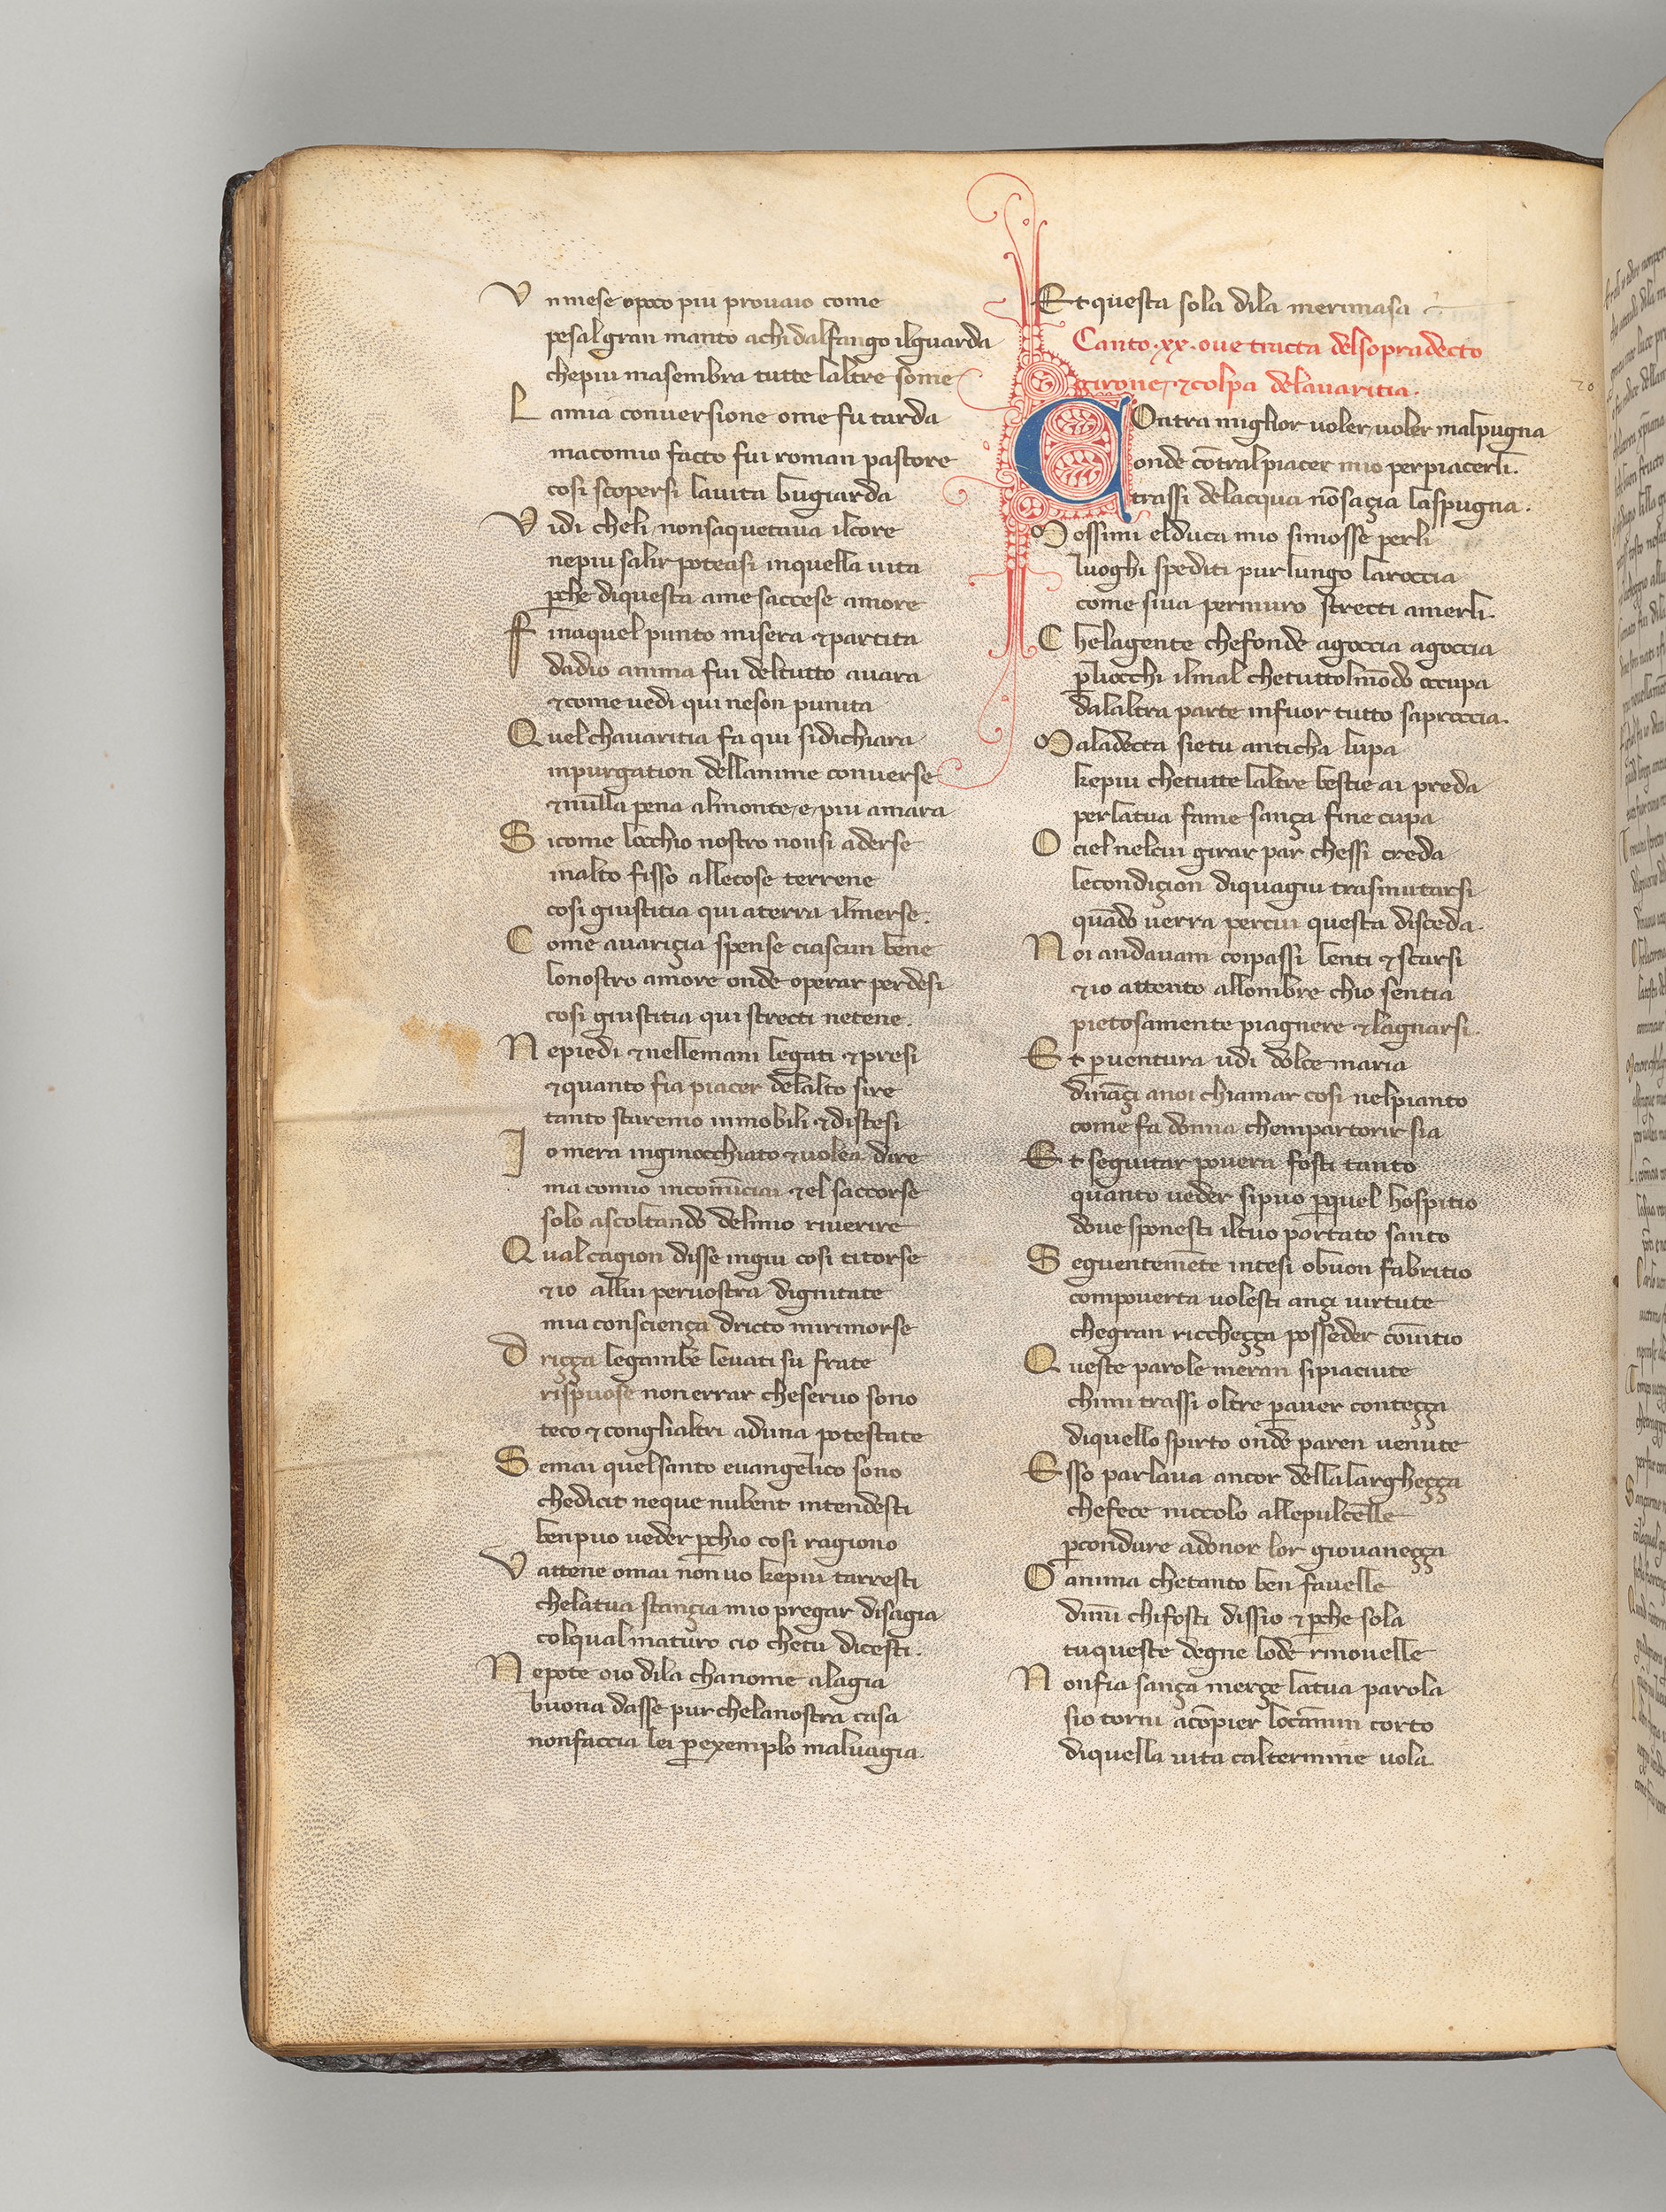 V n mese opoco piu prouaio come
pesal gran manto achi dalfango ilguarda
chepiu masembra tutte laltre some
L amia conuersione ome fu tarda
macomio facto fui roman pastore
cosi scopersi lauita bugiarda
V idi cheli nonsaquetaua ilcore
nepiu salir poteasi inquella uita
p̱che diquesta ame saccese amore
F inaquel punto misera ⁊ partita
dadio anima fui deltutto auara
⁊ come uedi qui neson punita
Q uel chauaritia fa qui sidichiara
inpurgation dellanime conuerse
⁊ nulla pena almonte, e, piu amara
S icome locchio nostro nonsi aderse
inalto fisso allecose terrene
cosi giustitia qui aterra ilmerse.
C ome auariçia spense ciascun bene
lonostro amore onde operar perdesi
cosi giustitia qui strecti netene.
N epiedi ⁊ nellemani legati ⁊ presi
⁊ quanto fia piacer delalto sire
tanto staremo inmobili ⁊ distesi
I o mera inginocchiato ⁊ uolea dire
ma comio incominciai ⁊ el saccorse
solo ascoltando delmio riuerire
Q ual cagion disse ingiu cosi titorse
⁊ io allui peruostra dignitate
mia consciença dricto mirimorse
D riçça legambe leuati su frate
rispuose non errar che seruo sono
teco ⁊ conglialtri aduna potestate
S emai quelsanto euangelico sono
chedicit neque nubent intendesti
benpuo ueder p̱chio cosi ragiono
V attene omai nōn uo kepiu tarresti
chelatua stançia mio pregar disagia
colqual maturo cio chetu dicesti.
N epote oio dila chanome alagia
buona dasse pur chelanostra casa
nonfaccia lei p̱exemplo maluagia.
Et questa sola dila merimasa
Canto .xx. oue tracta delsopradecto
girone, ⁊ colpa delauaritia.
COntra miglior uoler, uoler mal pugna
onde cōtral piacer mio per piacerli.
trassi delacqua nō saçia laspugna.
M ossimi elduca mio simosse p̱erli
luoghi spediti pur lungo laroccia
come siua permuro strecti amerli.
C helagente chefonde agoccia agoccia
p̱liocchi ilmal chetuttolmōdo occupa
dalaltra parte infuor tutto saproccia.
M aladecta sietu anticha lupa
kepiu chetutte laltre bestie ai preda
perlatua fame sança fine cupa
O ciel nelcui girar par chessi creda
lecondiçion diquagiu trasmutarsi
quādo uerra percui questa disceda.
N oi andauam coipassi lenti ⁊ scarsi
⁊ io attento allombre chio sentia
pietosamente piagnere ⁊ lagnarsi.
E t p̱uentura udi dolce maria
dināçi anoi chiamar cosi nelpianto
come fa donna chempartorir sia
E t seguitar pouera fosti tanto
quanto ueder sipuo p̱quel hospitio
doue sponesti iltuo portato santo
S eguentemēte intesi obuon fabritio
compouerta uolesti ançi uirtute
chegran ricchegga posseder cōuitio
Q ueste parole meran sipiaciute
chimi trassi oltre p̱auer conteçça
diquello spirto onde paren uenute
E sso parlaua ancor dellalargheçça
chefece niccolo allepulcelle
p̱condure adonor lor giouaneçça
O anima chetanto ben fauelle
dimi chifosti dissio ⁊ p̱che sola
tu queste degne lode rinouelle
N onfia sança merçe latua parola
sio torni acōpier locāmin corto
diquella uita caltermine uola